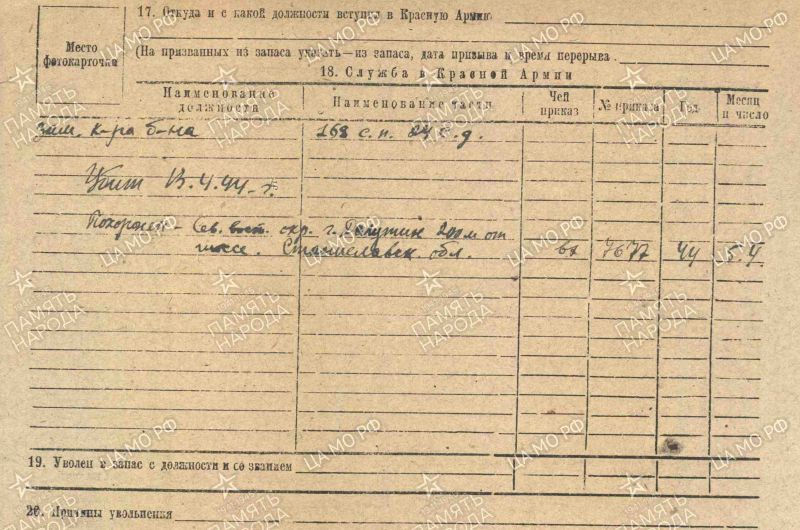 17. Откуда и с какой должности вступил в Красную Армию
Место
фотокарточки
(На призванных из запаса указать—из запаса, дата призыва и время перерыва
18. Служба в Красной Армии
Наименование должности
Наименование части
Чей приказ
№ приказа
Год
Месяц и число
зам. к-ра б-на
168 с.п. 24 с.д.
Убит 13.4.44 г.
Похоронен - Сев. вост. окр. г. 200 м от
шоссе. Станиславск. обл.
7677
44
19. Уволен в запас с должности и со званием
20. Причины увольнения
ЦАМО.РФ
ПАМЯТЬ НАРОДА